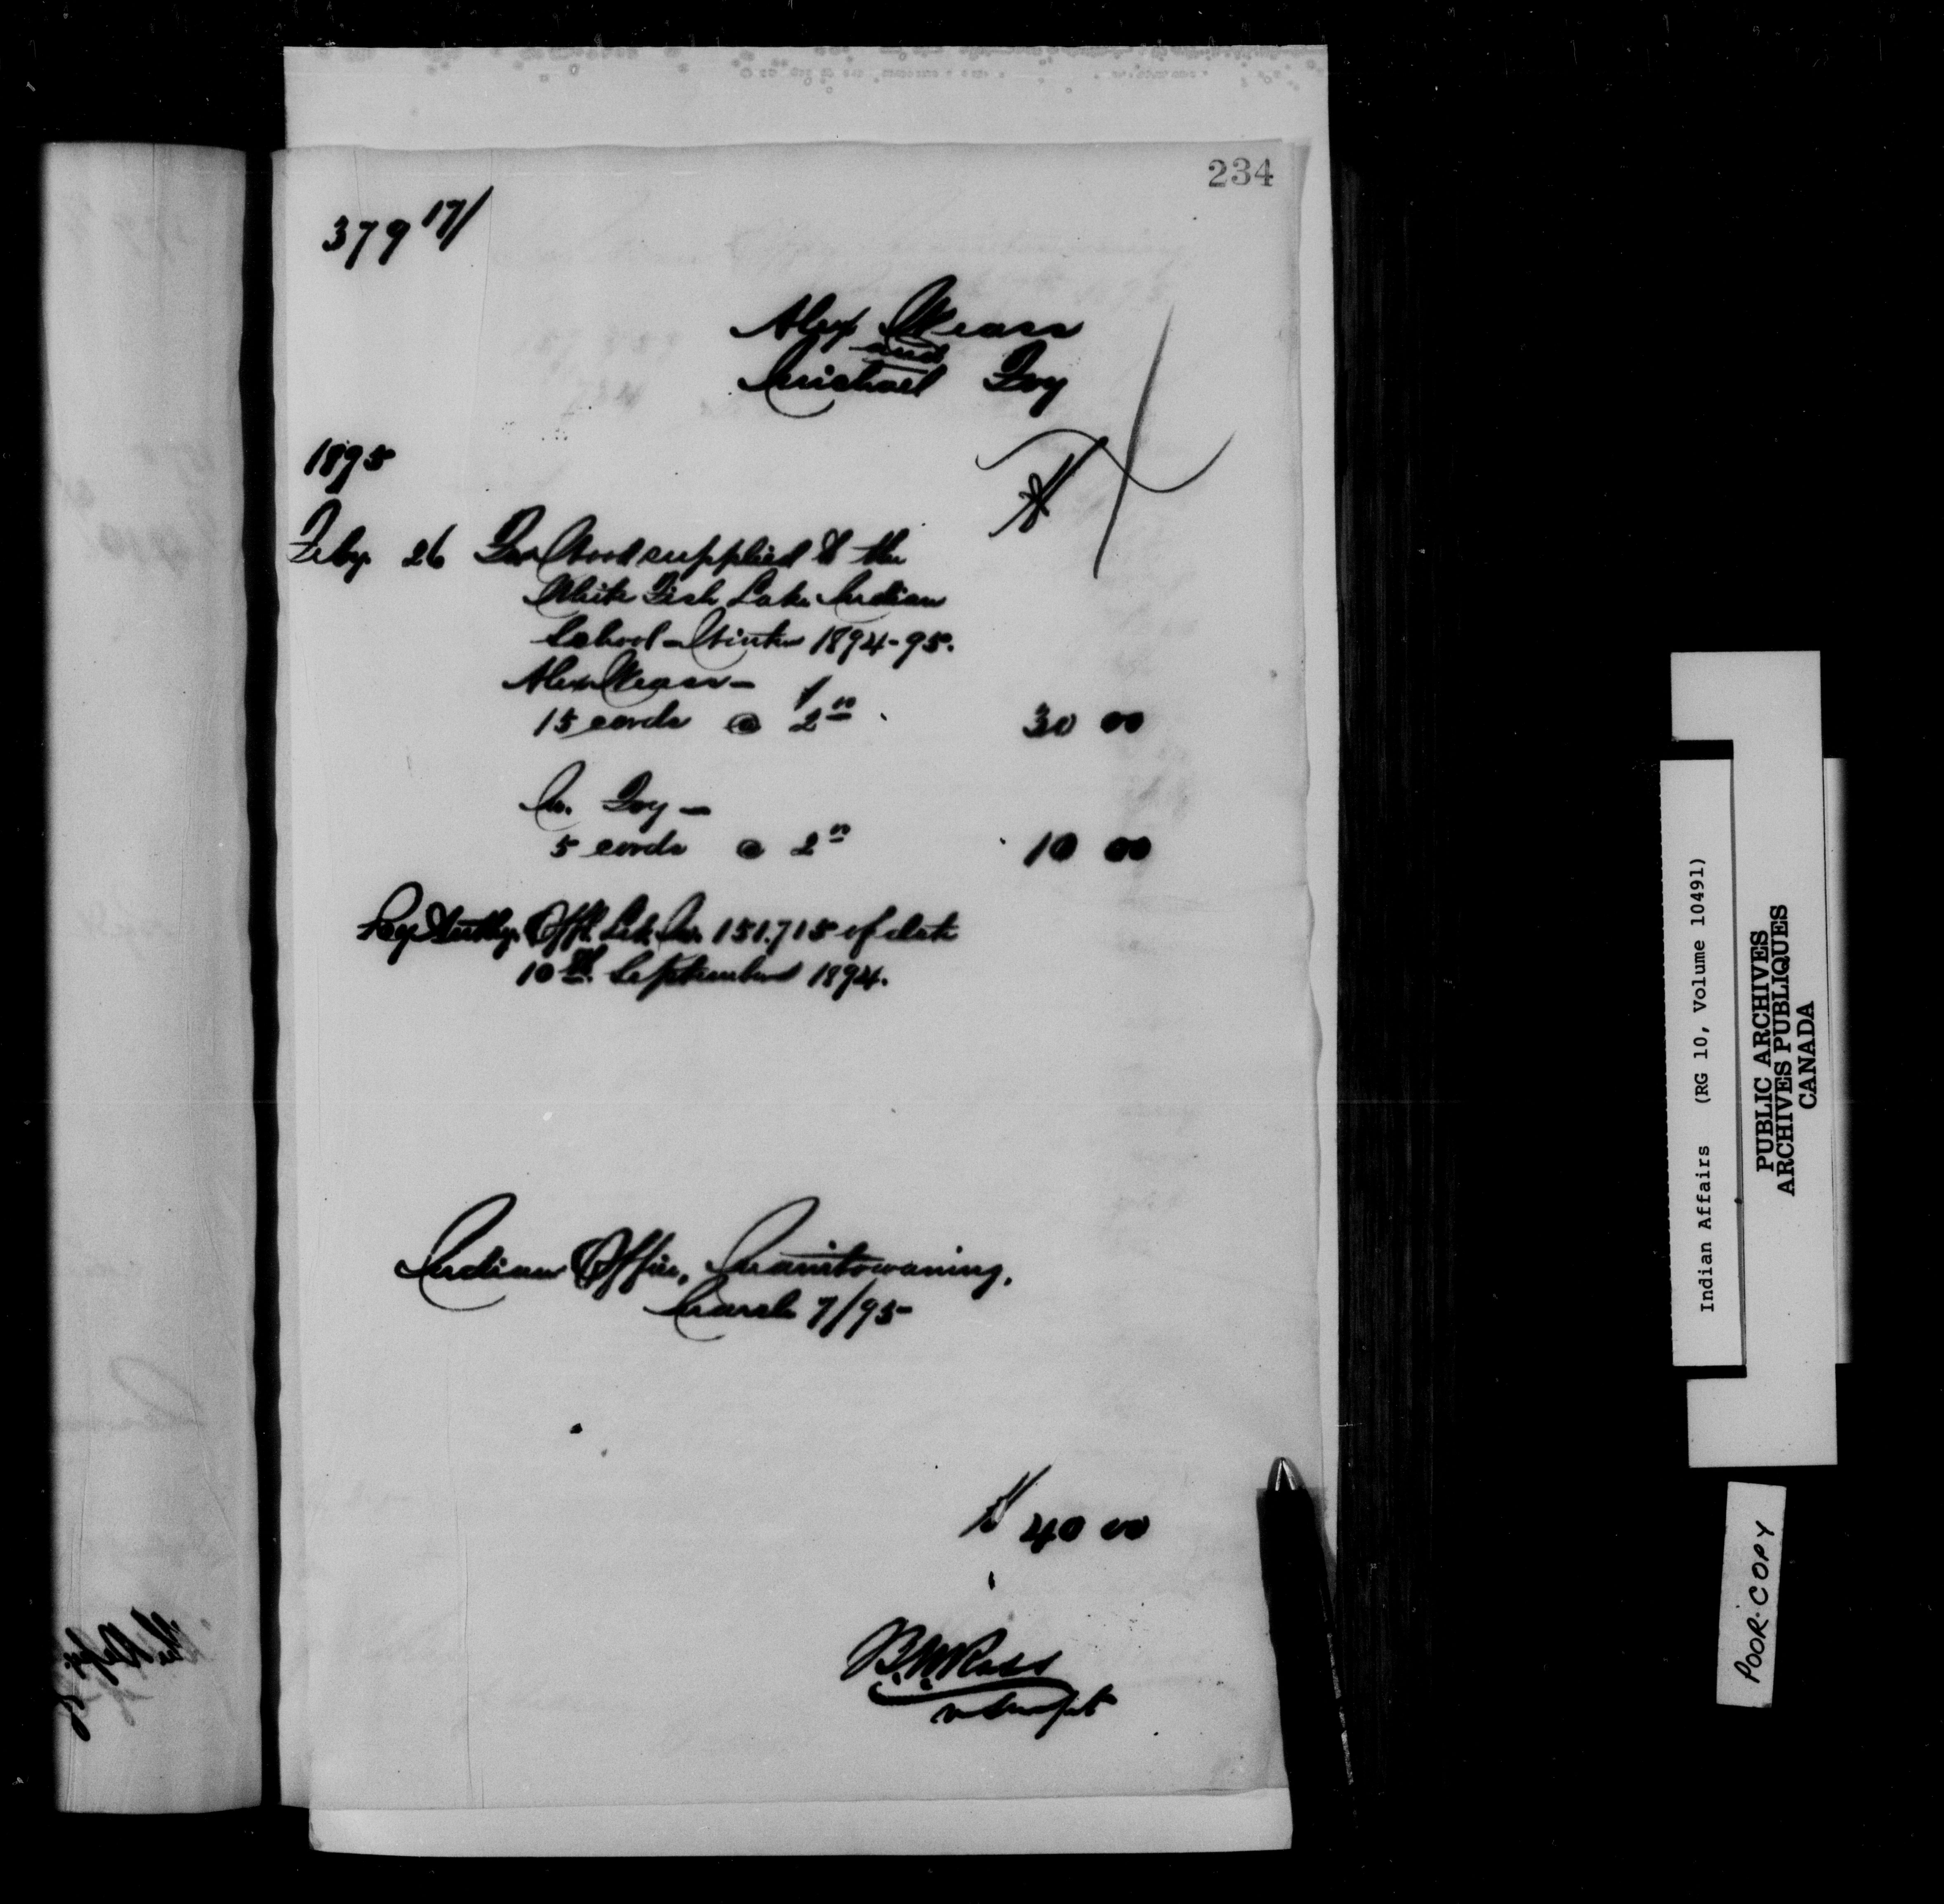 234
379 17/
Alex Weass
and
Michael Foy
1895
$
Feby. 26 For Wood supplied to the
White Fish Lake Indian
School - Winter 1894-95.
Alex Weass -
15 cords @ $2 00 30 00
M. Foy -
5 cords @ 2 00 10 00
Pay Authy. Offl. Let. No. 151.715 of date
10th. September 1894.
Indian Office, Manitowaning,
March 7/95
$ 40 00
B.W. Ross
Supt
Indian Affairs (RG 10, Volume 10491)
PUBLIC ARCHIVES
ARCHIVES PUBLIQUES
CANADA
POOR COPY